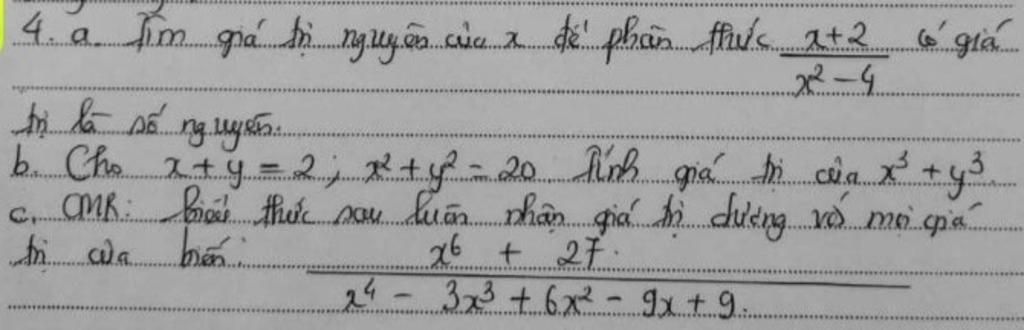 4. a. Tìm giá trị nguyên của x để phân thức (x+2)/(x² - 4) có giá
trị là số nguyên.
b. Cho x + y = 2; x² + y² = 20. Tính giá trị của x³ + y³.
c. CMR: Biểu thức sau luôn nhận giá trị dương với mọi giá
trị của biến: (x⁶ + 27)/(x⁴ - 3x³ + 6x² - 9x + 9).